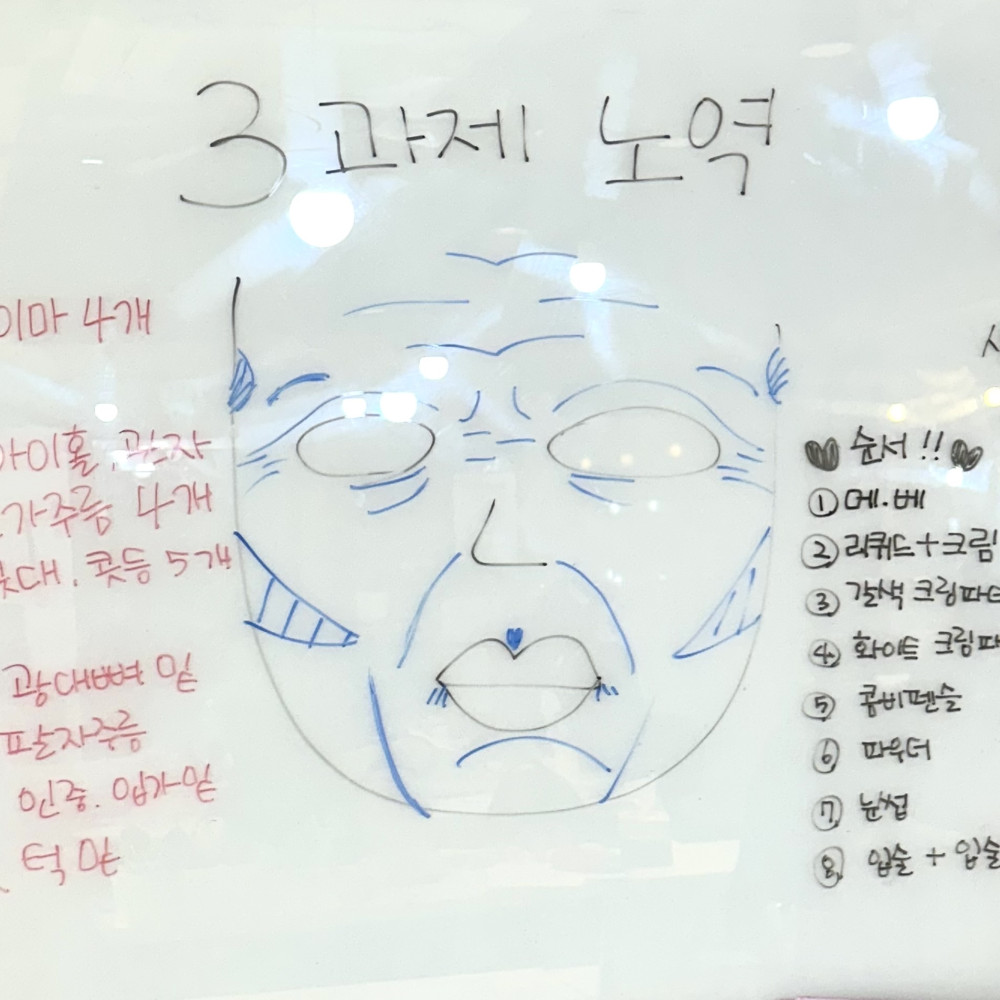 3과제 노역
이마 4개
아이홀. 관자
가주름 4개
콧대. 콧등 5개
광대뼈 밑
팔자주름
인중. 입가밑
턱 앞
순서!!
① 메.베
② 리퀴드+크림
③ 갈색 크림파
④ 화이트 크림파
⑤ 콤비펜슬
⑥ 파우더
⑦ 눈썹
⑧ 입술 + 입술